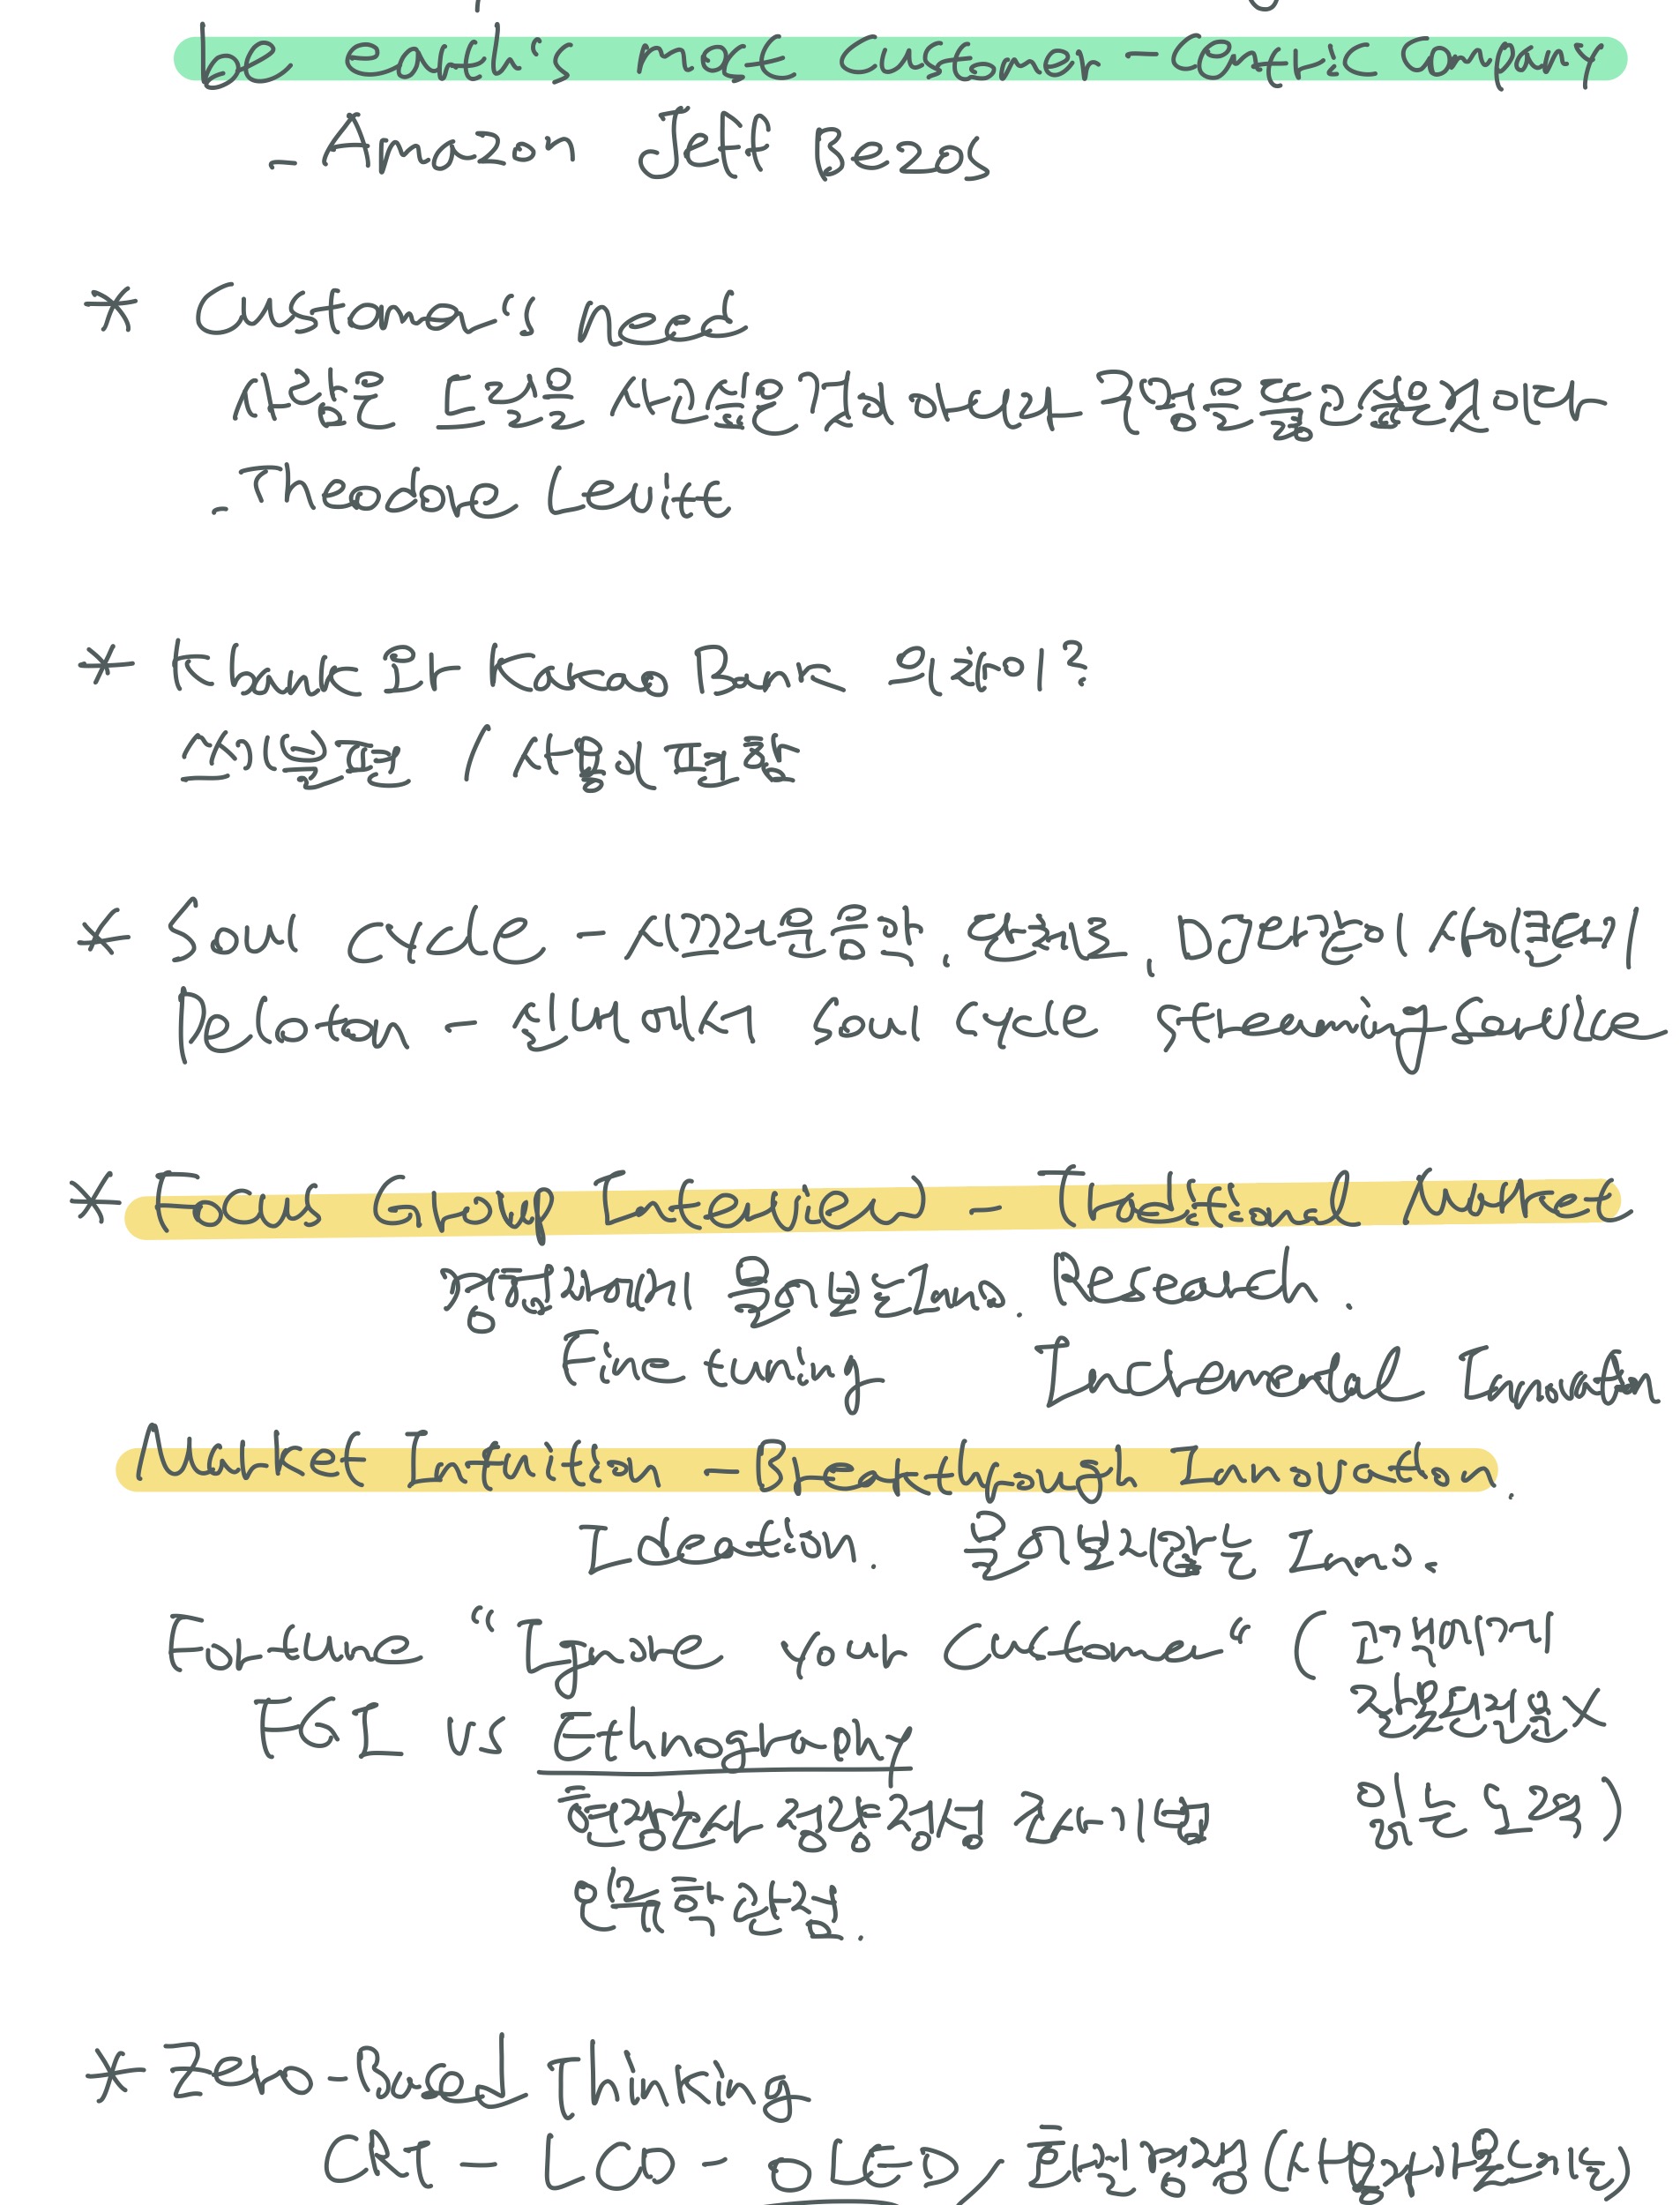 be earth's most customer-centric company
- Amazon Jeff Bezos
* Customer's need
사람은 드릴을 사는 것이 아니라 구멍을 뚫고 싶은 것이다
- Theodore Levitt
* K bank 와 Kakao Bank 의 차이?
쓰기 불편 / 사용이 편함
* Soul cycle - 시끄러운 음악, 야광 , DJ
Peloton - 안방에서 Soul cycle streaming service
* Focus Group Interview) - Traditional Market
경험자에게 물어보는 Inno. Research.
Fine tuning Incremental Innovation
Market Intuition - Breakthrough Innovation.
Ideation. 물어보지 않는 Inno.
Fortune "Ignore your Customer" ( 고객에게
잘못된 질문 X
FGI vs Ethnography
있는 노력)
현장관찰 정량 정성 조사기법
인류학 관점.
* Zero-Based Thinking
CRT - LCD - OLED /